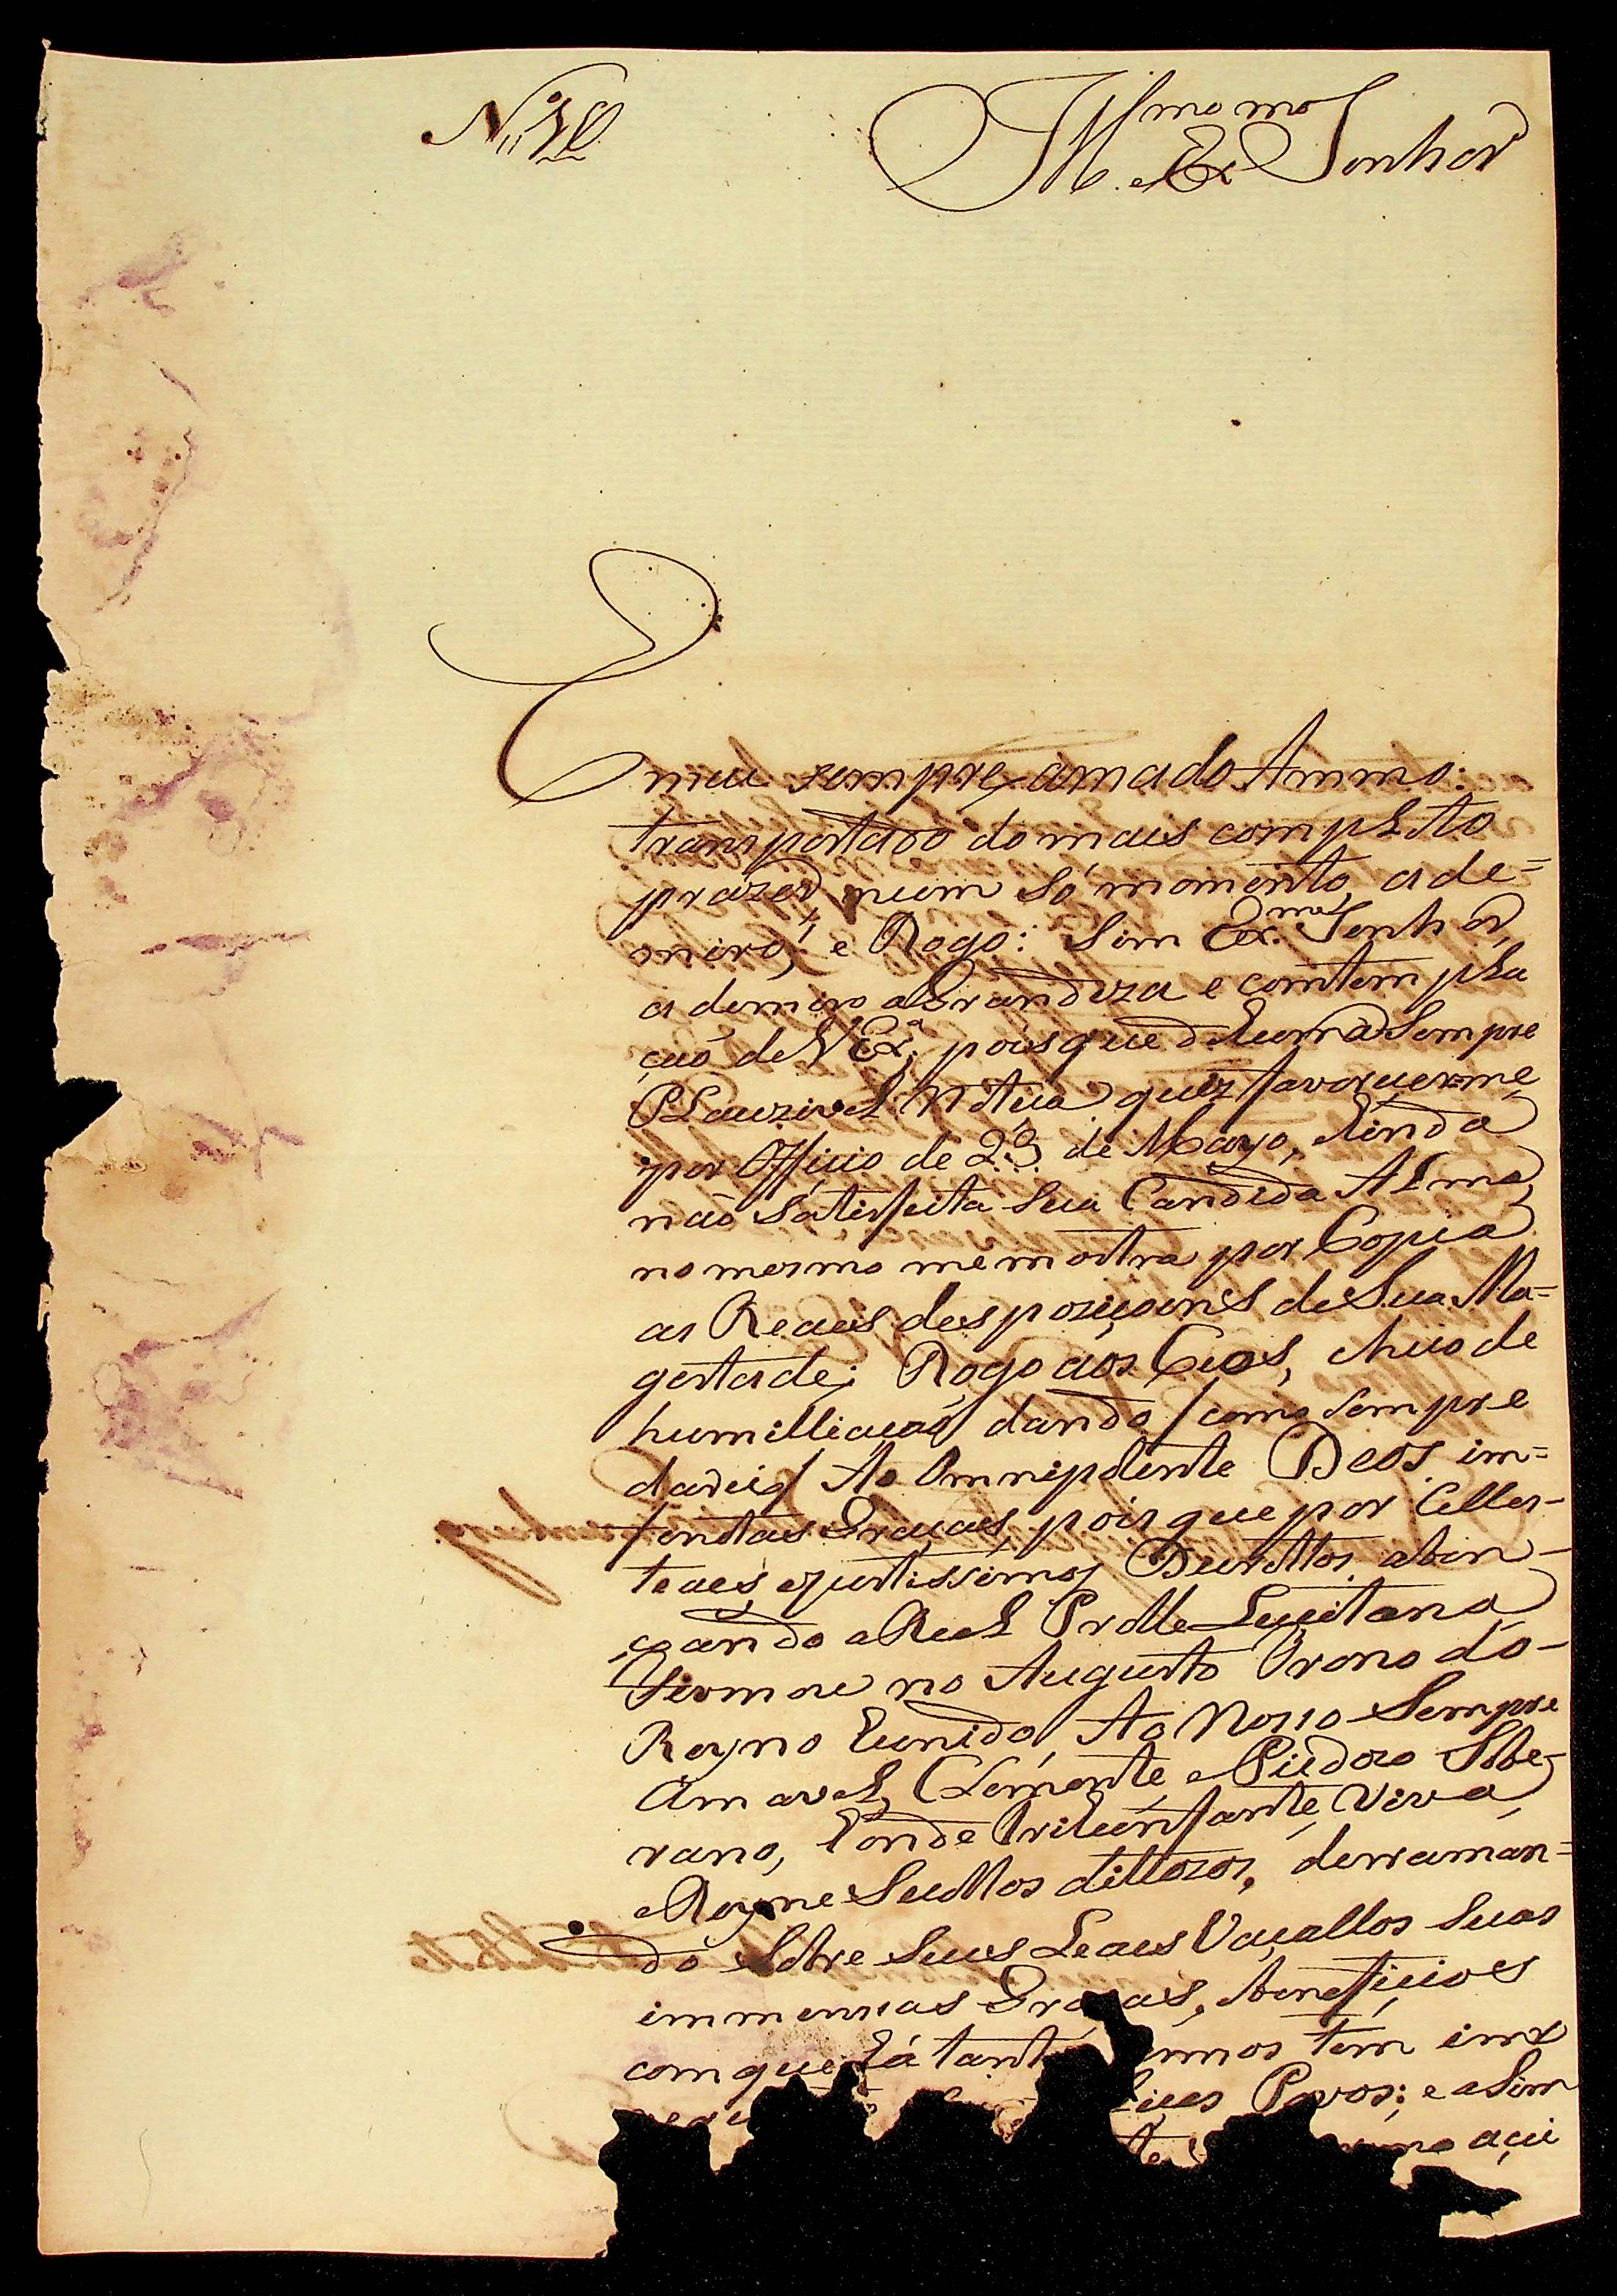 N.
Ill.mo Ex.mo Senhor
O meu sempre amado Ammo:
transportado do mais completo
prazer, num só momento, ade=
miro, e Rogo: Sim Ex.mo Senhor,
ademiro a Grandeza e comtempla
çaõ de V Ex.ª, pois que de huma Sempre
Plauzivel Noticia quiz favoreçerme
por Offiçio de 23 de Mayo, Ainda
naõ Satisfeita Sua Candida Alma,
no mesmo me mostra por Copia
as Reaes despoziçoens de Sua Ma=
gestade; Rogo aos Ceos, cheio de
humilliaçaõ, dando /como Sempre
darei/ Ao Omnipotente Deos im=
fenitas Graças, pois que por Celles-
teaes, e justissimos Decrettos, aben-
çoando a Real Prolle Luzitana
Firmou no Augusto Trono do-
Reyno Eunido, Ao Nosso Sempre
Amavel, Clemente, e Piedozo Sobe-
rano, honde Triunfante, Viva,
e Reyne Secullos dittozos, derraman=
do Sobre Seus Leaes Vaçallos Suas
immenssas Graças, benefiçioes
com que há tant nnos tem
lices Povos; e aSim
açi